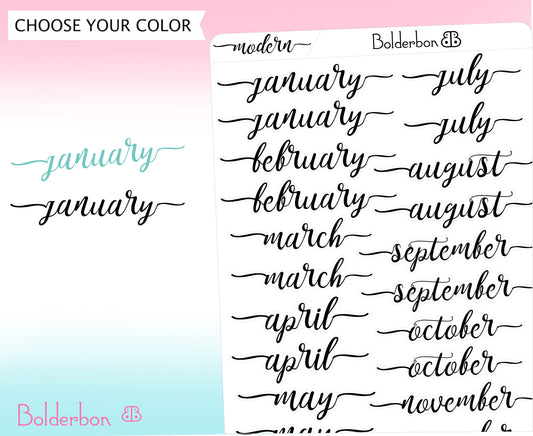 CHOOSE YOUR COLOR
modern
Bolderbon BB
january
january
february
february
march
march
april
april
may
may
july
july
august
august
september
september
october
october
november
january
january
Bolderbon BB